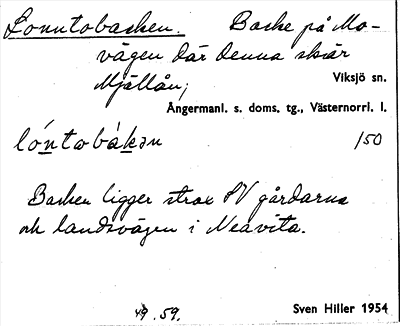 Lonntobacken. Backe på Mo-
vägen där denna skär
Mjällån; Viksjö sn.
Ångermanl. s. doms. tg., Västernorrl. l.
ló́nto bákən 150
Backen ligger strax SV gårdarna
och landsvägen i Neavita.
49. 59. Sven Hiller 1954